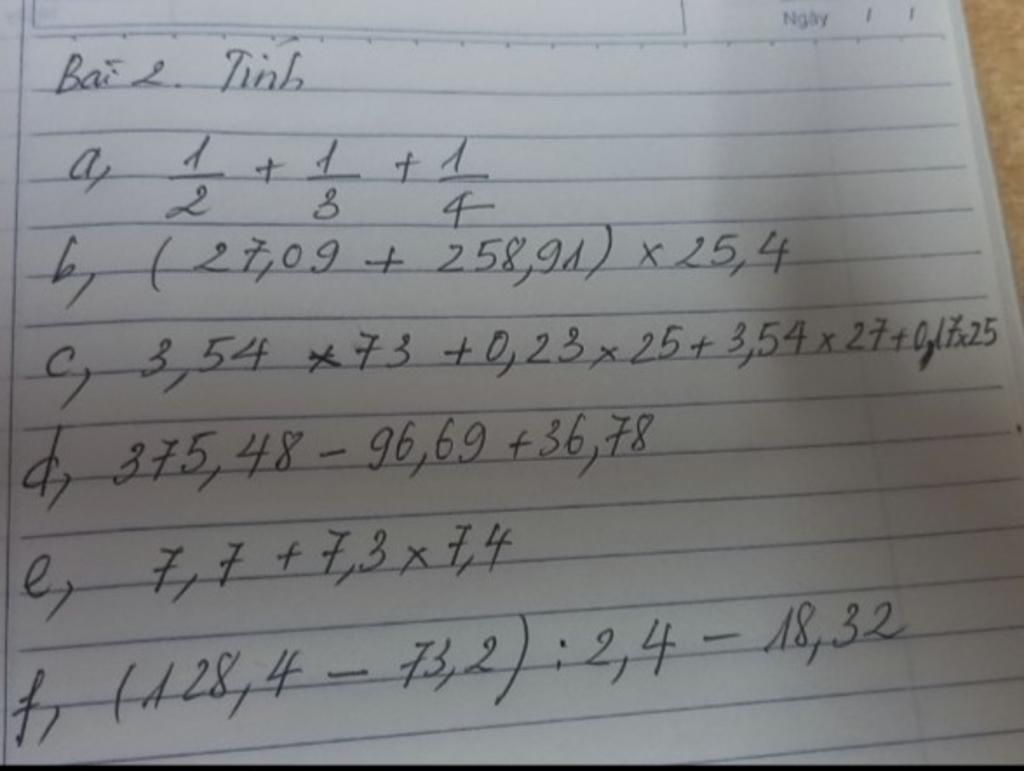 Ngày / /
Bài 2. Tính
a, 1/2 + 1/3 + 1/4
b, (27,09 + 258,91) × 25,4
c, 3,54 × 73 + 0,23 × 25 + 3,54 × 27 + 0,17×25
d, 375,48 - 96,69 + 36,78
e, 7,7 + 7,3 × 7,4
f, (128,4 - 73,2) : 2,4 - 18,32